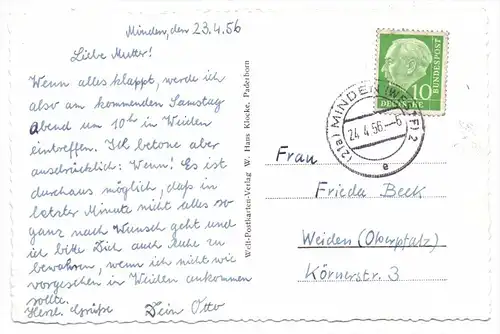 Minden, den 23.4.56
Liebe Mutter!
Wenn alles klappt, werde ich
also am kommenden Samstag
abend um 10h in Weiden
eintreffen. Ich betone aber
ausdrücklich: Wenn! Es ist
durchaus möglich, daß in
letzter Minute nicht alles so
ganz nach Wunsch geht und
ich bitte Dich auch Ruhe zu
bewahren, wenn ich nicht wie
vorgesehen in Weiden ankommen
sollte.
Herzl. Grüße Dein Otto
Welt-Postkarten-Verlag W. Hans Klocke, Paderborn
DEUTSCHE BUNDESPOST
10
(21a) MINDEN (WESTF) 2
24.4.56.-6
e
Frau
Frieda Beck
Weiden (Oberpfalz)
Körnerstr. 3